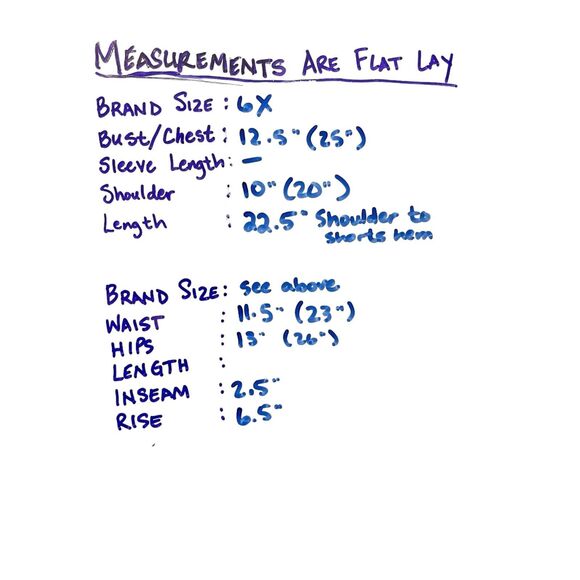 MEASUREMENTS ARE FLAT LAY
BRAND SIZE : 6X
Bust/Chest : 12.5" (25")
Sleeve Length : —
Shoulder : 10" (20")
Length : 22.5" Shoulder to
shorts hem
BRAND SIZE : see above
WAIST : 11.5" (23")
HIPS : 13" (26")
LENGTH :
INSEAM : 2.5"
RISE : 6.5"